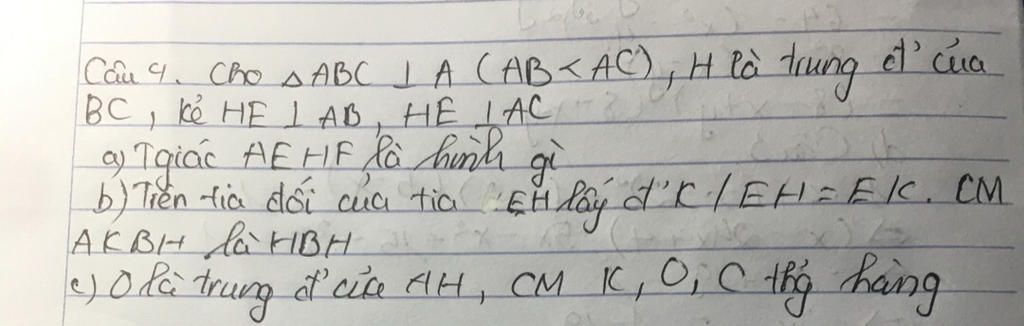 Câu 4. Cho △ABC ⊥ A (AB < AC), H là trung đ' của
BC, kẻ HE ⊥ AB, HE ⊥ AC
a) Tgiác AEHF là hình gì
b) Trên tia đối của tia EH lấy đ' K / EH = EK. CM
AKBH là HBH
c) O là trung đ' của AH, CM K, O, C thẳg hàng